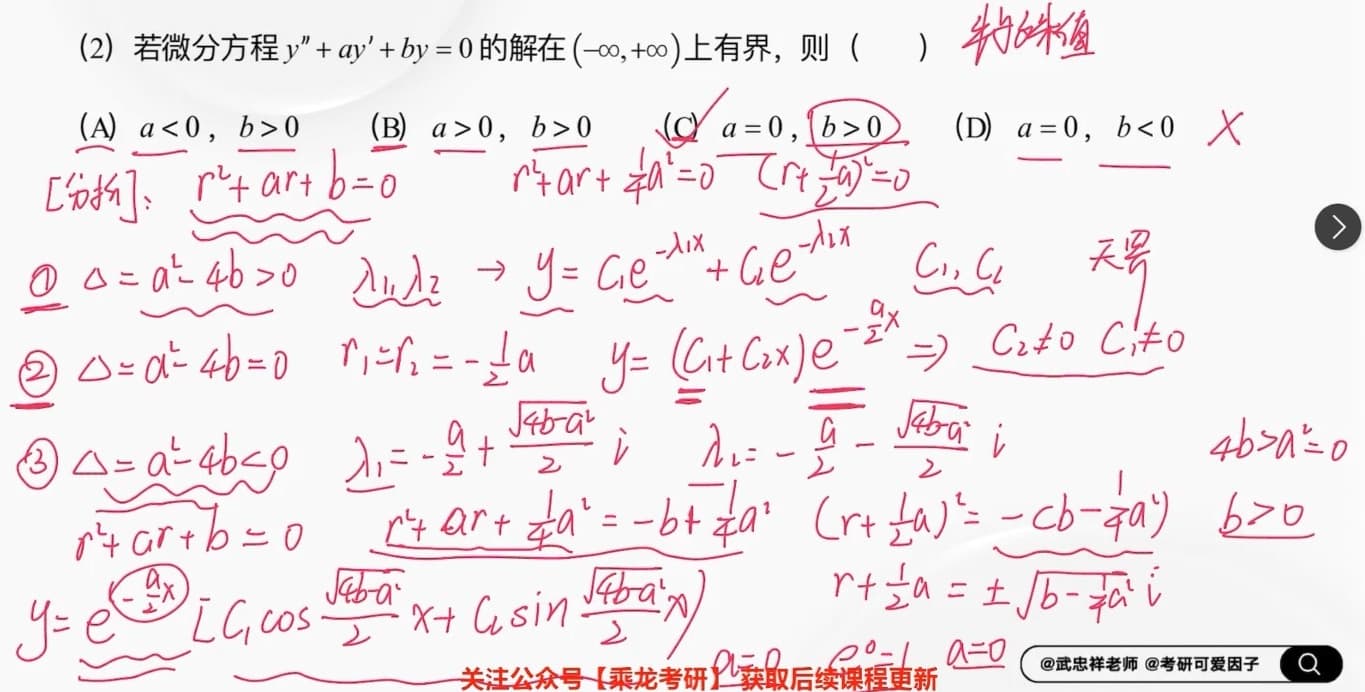 (2) 若微分方程 y″ + ay′ + by = 0 的解在 (−∞, +∞) 上有界，则（ ） 特征值
(A) a < 0， b > 0 (B) a > 0， b > 0 (C) a = 0， b > 0 (D) a = 0， b < 0 ×
[分析]: r²+ar+b=0 r²+ar+¼a²=0 (r+½a)²=0
① Δ=a²−4b>0 λ₁,λ₂ → y=C₁e^(−λ₁x)+C₂e^(−λ₂x) C₁,C₂
② Δ=a²−4b=0 r₁=r₂=−½a y=(C₁+C₂x)e^(−a/2 x) ⇒ C₂≠0 C₁≠0
③ Δ=a²−4b<0 λ₁=−a/2+√(4b−a²)/2 i λ₂=−a/2−√(4b−a²)/2 i 4b>a²=0
r²+ar+b=0 r²+ar+¼a²=−b+¼a² (r+½a)²=−(b−¼a²) b>0
r+½a=±√(b−¼a²) i
y=e^(−a/2 x)[C₁cos √(4b−a²)/2 x+C₂sin √(4b−a²)/2 x]
a=0 e⁰=1 a=0
@武忠祥老师 @考研可爱因子
关注公众号【乘龙考研】获取后续课程更新